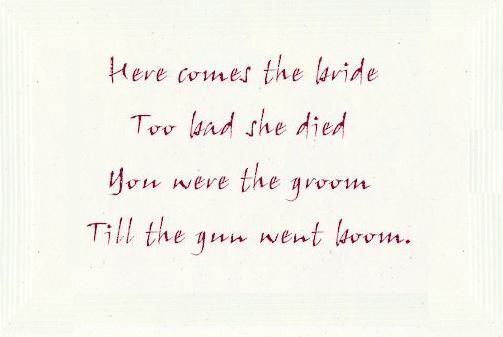 Here comes the bride
Too bad she died
You were the groom
Till the gun went boom.